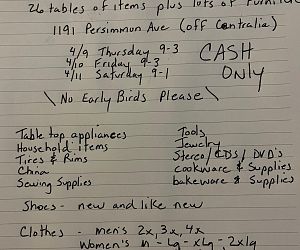 26 tables of items plus lots of furnitu
1191 Persimmon Ave (off Centralia)
4/9 Thursday 9-3
4/10 Friday 9-3
4/11 Saturday 9-1
CASH
ONLY
\ No Early Birds Please \
Table top appliances
Household items
Tires & Rims
China
Sewing Supplies
Tools
Jewelry
Stereo/CDS/DVD's
cookware & Supplies
bakeware & Supplies
Shoes - new and like new
Clothes - men's 2x, 3x, 4x
Women's m - Lg - xLg - 2xlg